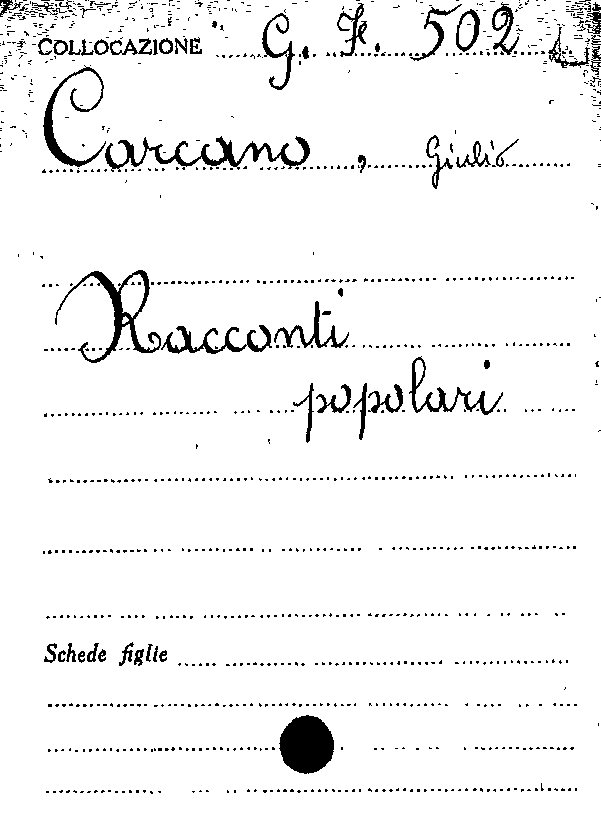 COLLOCAZIONE G. F. 502
Carcano, Giulio
Racconti
popolari
Schede figlie